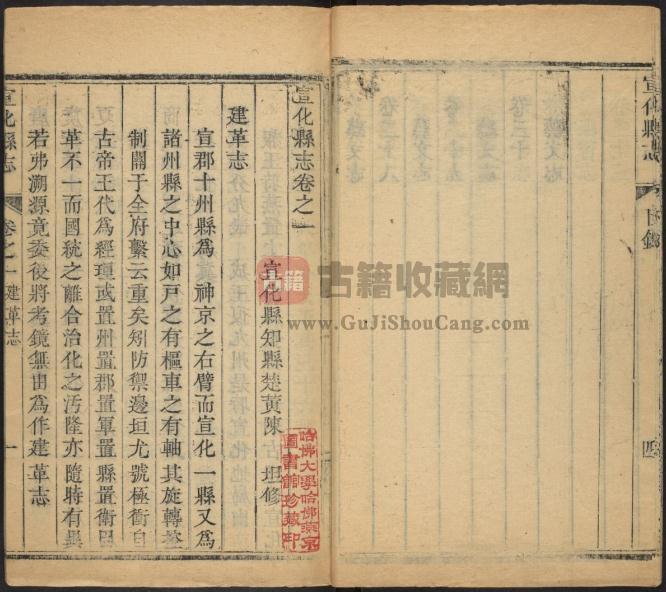 宣化縣志
目錄
四
宣化縣志卷之一
宣化縣知縣楚黃陳 坦修
建革志
宣郡十州縣爲神京之右臂而宣化一縣又爲
諸州縣之中心如戸之有樞車之有軸其旋轉控
制關于全府繫云重矣矧防禦邊垣尤號極衝自
古帝王代爲經理或置州置郡置軍置縣置衛因
革不一而國統之離合治化之汚隆亦隨時有異
若弗溯源竟委後將考鏡無由爲作建革志
宣化縣志
卷之一 建革志
一
哈佛大學哈佛燕京
圖書館珍藏印
古籍
古籍收藏網
www.GuJiShouCang.com